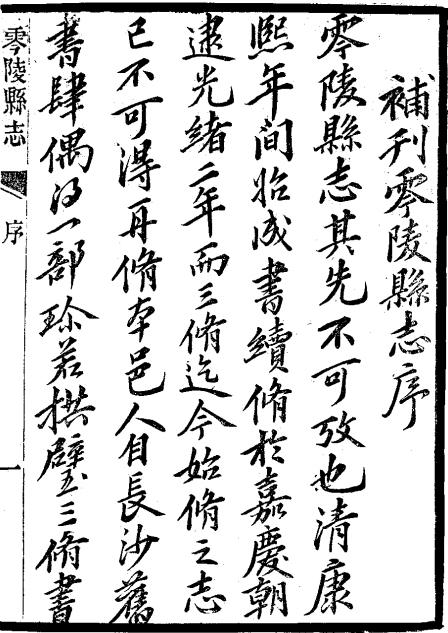 補刊零陵縣志序
零陵縣志其先不可攷也清康
熙年间始成書續脩於嘉慶朝
逮光緒二年而三脩迄今始脩之志
已不可得再脩本邑人自長沙舊
書肆偶得一部珎若拱璧三脩書
零陵縣志
序
一